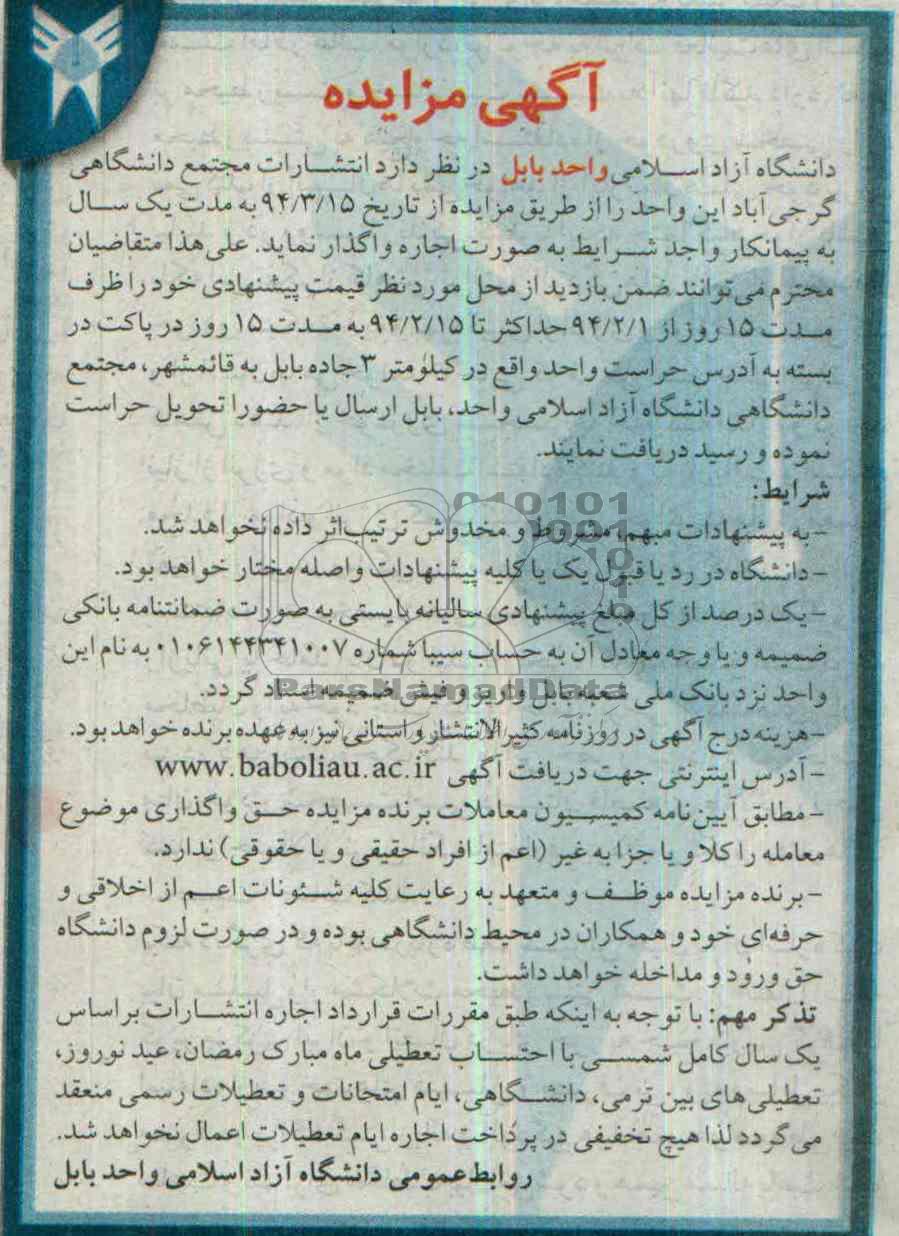 آگهی مزایده
دانشگاه آزاد اسلامی واحد بابل در نظر دارد انتشارات مجتمع دانشگاهی
گرجی آباد این واحد را از طریق مزایده از تاریخ ۹۴/۳/۱۵ به مدت یک سال
به پیمانکار واجد شرایط به صورت اجاره واگذار نماید. علی هذا متقاضیان
محترم می توانند ضمن بازدید از محل مورد نظر قیمت پیشنهادی خود را ظرف
مدت ۱۵ روز از ۹۴/۲/۱ حداکثر تا ۹۴/۲/۱۵ به مدت ۱۵ روز در پاکت در
بسته به آدرس حراست واحد واقع در کیلومتر ۳ جاده بابل به قائمشهر، مجتمع
دانشگاهی دانشگاه آزاد اسلامی واحد، بابل ارسال یا حضورا تحویل حراست
نموده و رسید دریافت نمایند.
شرایط:
- به پیشنهادات مبهم، مشروط و مخدوش ترتیب اثر داده نخواهد شد.
- دانشگاه در رد یا قبول یک یا کلیه پیشنهادات واصله مختار خواهد بود.
- یک درصد از کل مبلغ پیشنهادی سالیانه بایستی به صورت ضمانتنامه بانکی
ضمیمه و یا وجه معادل آن به حساب سیبا شماره ۰۱۰۶۱۴۴۳۴۱۰۰۷ به نام این
واحد نزد بانک ملی شعبه بابل واریز و فیش ضمیمه اسناد گردد.
- هزینه درج آگهی در روزنامه کثیرالانتشار و استانی نیز به عهده برنده خواهد بود.
- آدرس اینترنتی جهت دریافت آگهی www.baboliau.ac.ir
- مطابق آیین نامه کمیسیون معاملات برنده مزایده حق واگذاری موضوع
معامله را کلا و یا جزا به غیر (اعم از افراد حقیقی و یا حقوقی) ندارد.
- برنده مزایده موظف و متعهد به رعایت کلیه شئونات اعم از اخلاقی و
حرفه‌ای خود و همکاران در محیط دانشگاهی بوده و در صورت لزوم دانشگاه
حق ورود و مداخله خواهد داشت.
تذکر مهم: با توجه به اینکه طبق مقررات قرارداد اجاره انتشارات براساس
یک سال کامل شمسی با احتساب تعطیلی ماه مبارک رمضان، عید نوروز،
تعطیلی های بین ترمی، دانشگاهی، ایام امتحانات و تعطیلات رسمی منعقد
می گردد لذا هیچ تخفیفی در پرداخت اجاره ایام تعطیلات اعمال نخواهد شد.
روابط عمومی دانشگاه آزاد اسلامی واحد بابل
ParsNamadData